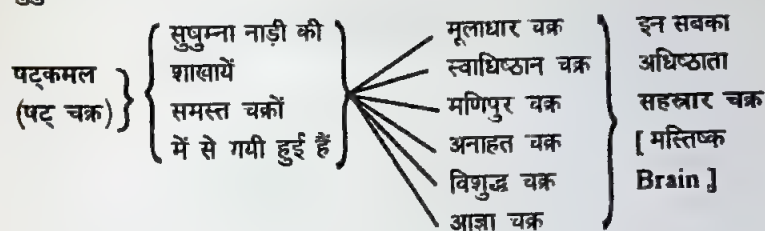 षट्कमल
(षट् चक्र)
सुषुम्ना नाड़ी की
शाखायें
समस्त चक्रों
में से गयी हुई हैं
मूलाधार चक्र
स्वाधिष्ठान चक्र
मणिपुर चक्र
अनाहत चक्र
विशुद्ध चक्र
आज्ञा चक्र
इन सबका
अधिष्ठाता
सहस्रार चक्र
[ मस्तिष्क
Brain ]